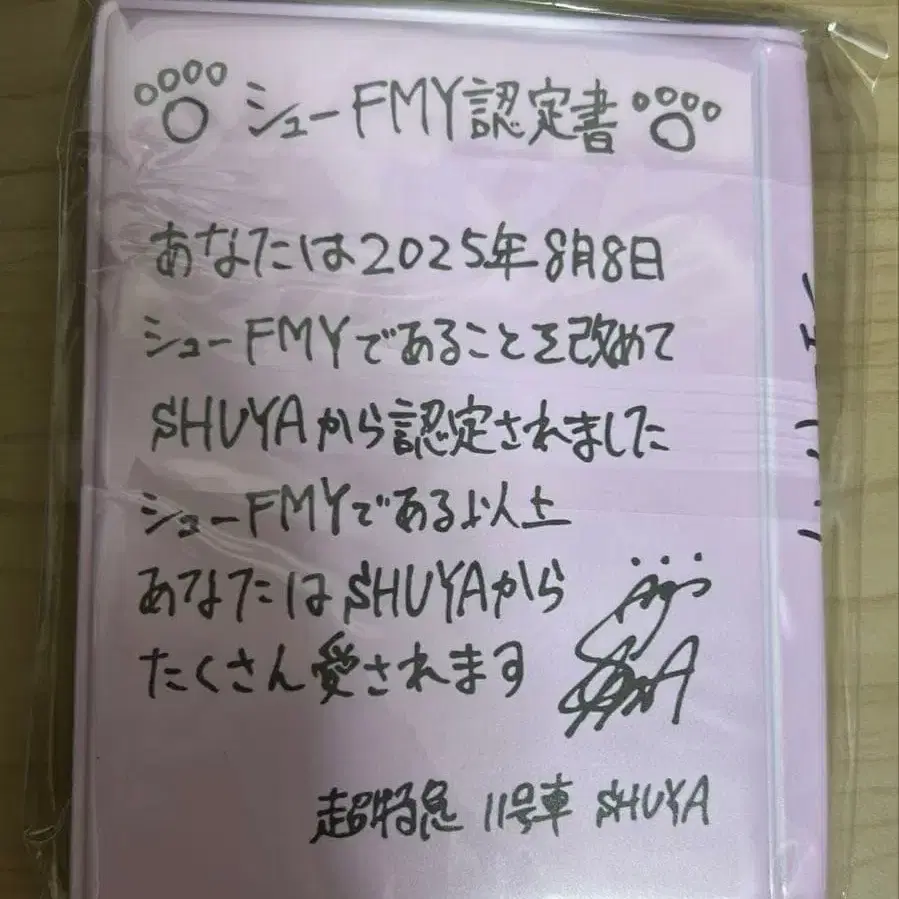 シューFMY認定書
あなたは2025年8月8日
シューFMYであることを改めて
SHUYAから認定されました
シューFMYである以上
あなたはSHUYAから
たくさん愛されます
超特急 11号車 SHUYA